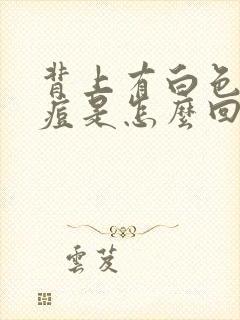 背上有白色
痘是怎麼回
雲芨